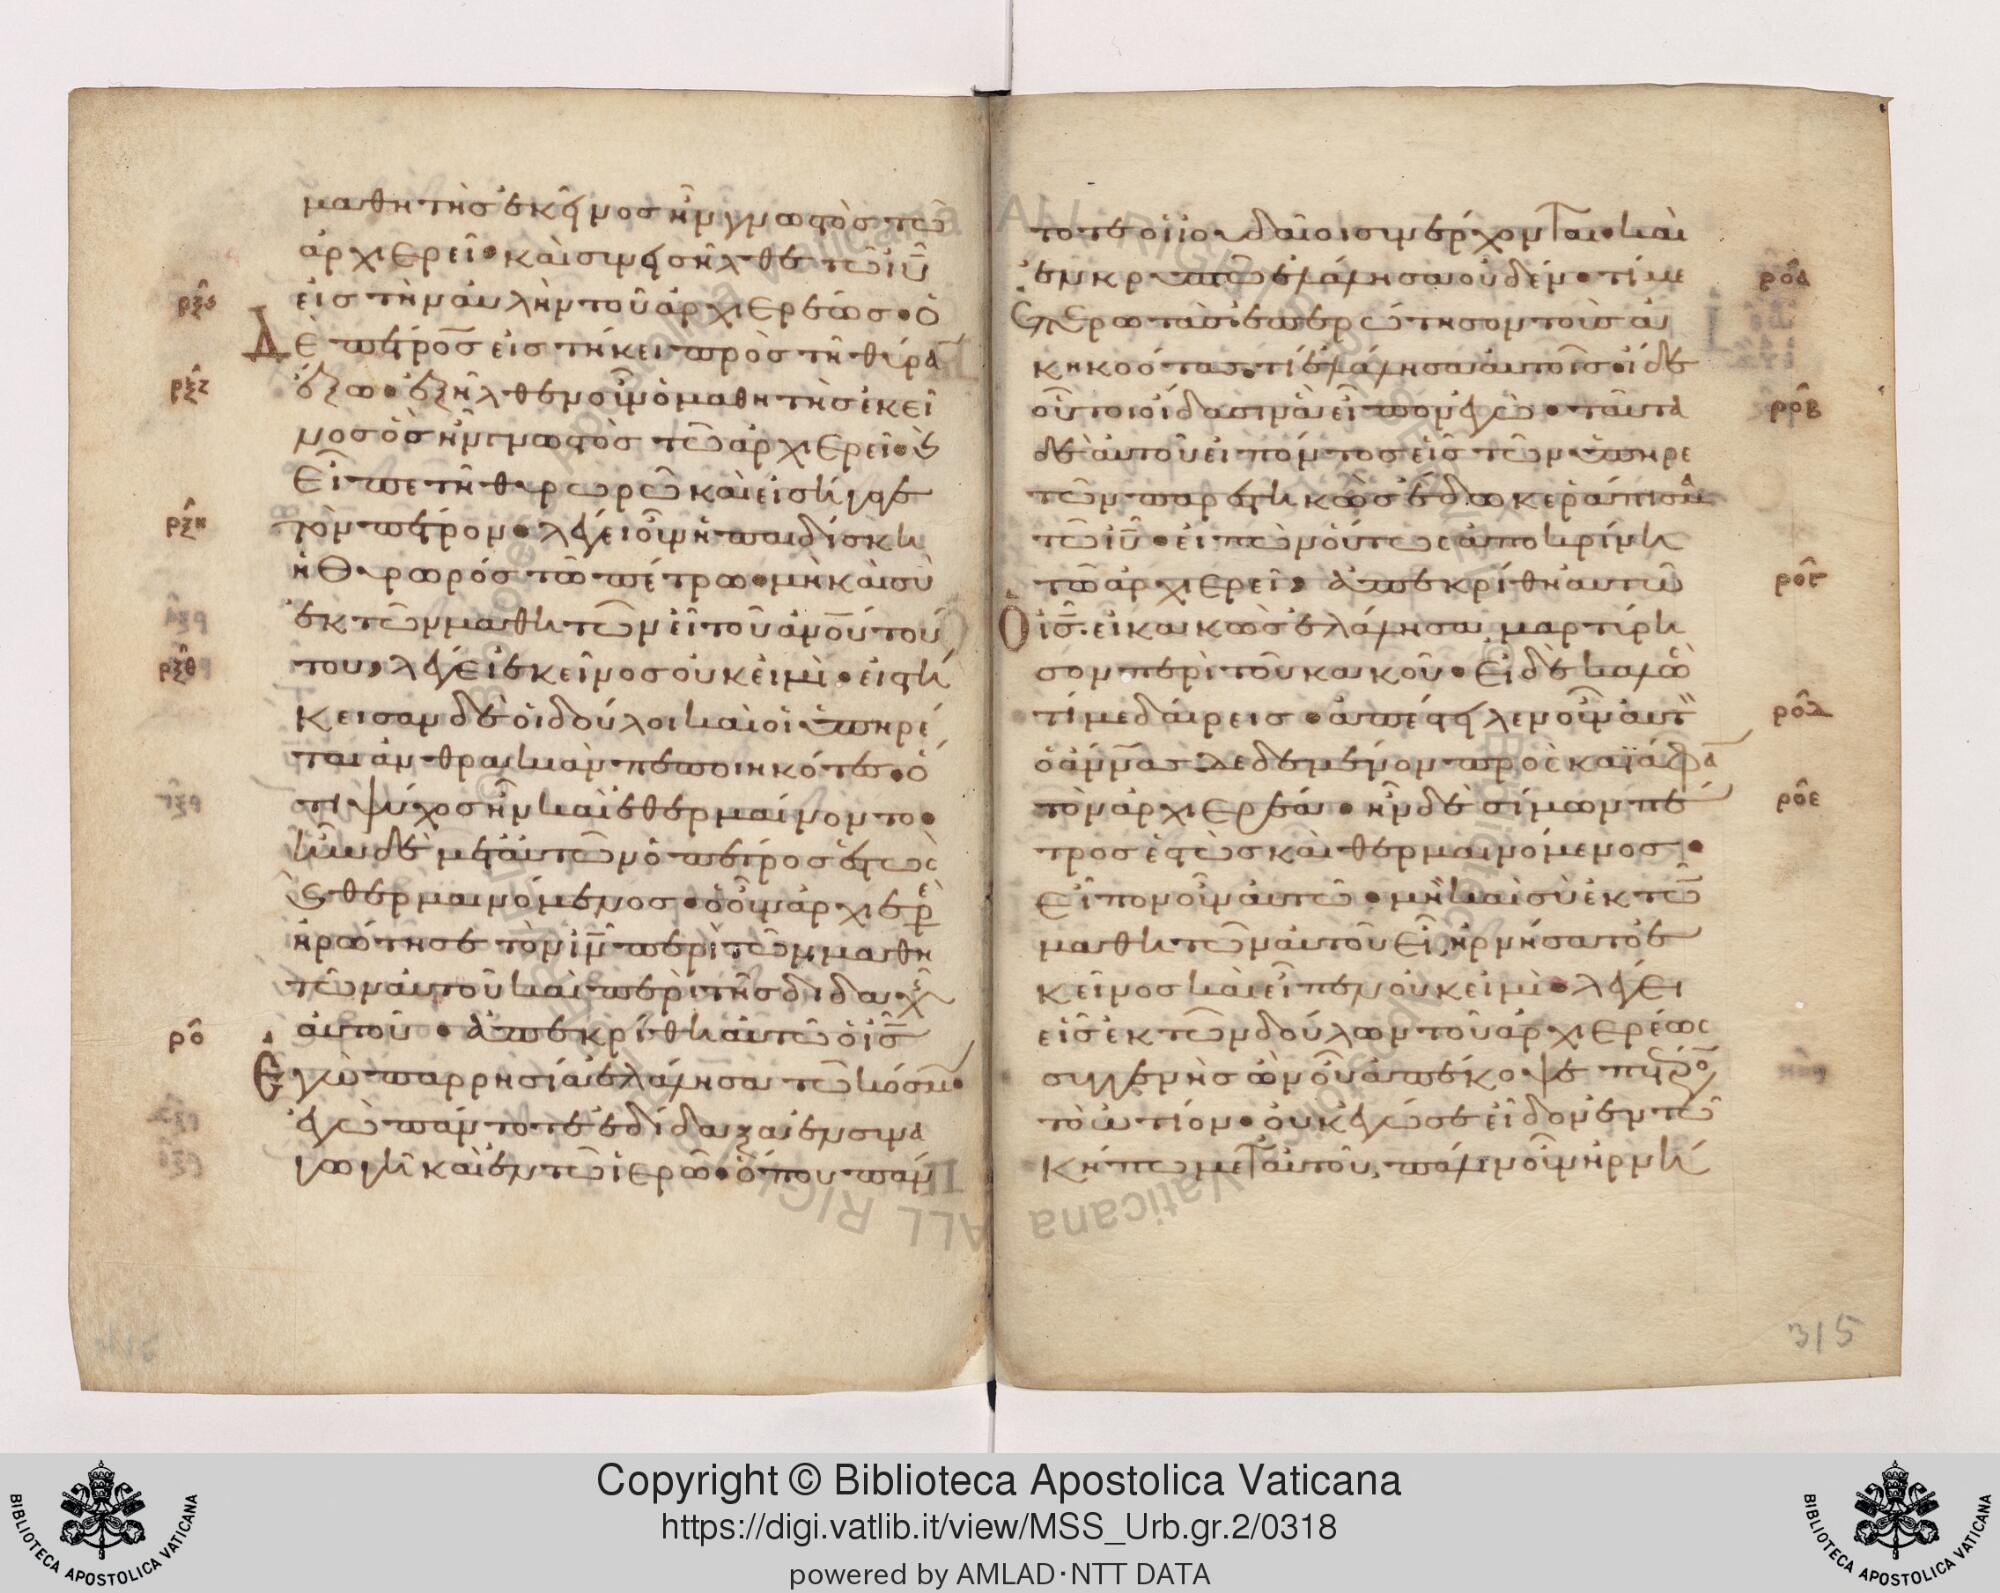 μαθητὴς ἐκεῖνος ἦν γνωστὸς τῶ
ἀρχιερεῖ· καὶ συνεισῆλθε τῶ ιῦ
εἰς τὴν αὐλὴν τοῦ ἀρχιερέως· ὁ
ρξϛ
Δὲ πέτρος εἱστήκει πρὸς τῆ θύρα
ἔξω· ἐξῆλθεν οὖν ὁ μαθητὴς ἐκεῖ
ρξζ
νος ὃς ἦν γνωστὸς τῶ ἀρχιερεῖ· καὶ
εἶπε τῆ θυρωρῶ καὶ εἰσήγαγε
τὸν πέτρον· λέγει οὖν ἡ παιδίσκη
ρξη
ἡ θυρωρός τῶ πέτρω· μὴ καὶ σὺ
ἐκ τῶν μαθητῶν εἶ τοῦ ανου τού
του, λέγει ἐκεῖνος οὐκ εἰμί· εἱστή
ρξθ
κεισαν δὲ οἱ δούλοι καὶ οἱ ὑπηρέ
ται ἀνθρακιὰν πεποιηκότες· ὅ
τι ψύχος ἦν καὶ ἐθερμαίνοντο·
ἦν δὲ μετ' αὐτῶν ὁ πέτρος ἑστὼς
καὶ θερμαινόμενος· ὁ οὖν ἀρχιερε
ἠρώτησε τὸν ιν περὶ τῶν μαθη
τῶν αὐτοῦ καὶ περὶ τῆς διδαχῆ
αὐτοῦ· ἀπεκρίθη αὐτῶ ὁ ις
ρο
Ἐγὼ παρρησία ἐλάλησα τῶ κόσμω·
ἐγὼ πάντοτε ἐδίδαξα ἐν συνα
γωγῆ καὶ ἐν τῶ ἱερῶ· ὅπου πάν
τοτε οἱ ἰουδαῖοι συνέρχονται· καὶ
ἐν κρυπτῶ ἐλάλησα οὐδέν· τί με
ροα
ἐπερωτᾶς· ἐπερώτησον τοὺς ἀ
κηκοότας· τί ἐλάλησα αὐτοῖς· ἴδε
οὗτοι οἴδασιν ἃ εἶπον ἐγώ· ταῦτα
ροβ
δὲ αὐτοῦ εἰπόντος εἷς τῶν ὑπηρε
τῶν παρεστηκὼς ἔδωκε ράπισμα
τῶ ιῦ· εἰπὼν οὕτως ἀποκρίνη
τῶ ἀρχιερεῖ, ἀπεκρίθη αὐτῶ
ρογ
Ὁ ις. εἰ κακῶς ἐλάλησα μαρτύρη
σον περὶ τοῦ κακοῦ· εἰ δὲ καλῶ
τί με δαίρεις· ἀπέστειλεν οὖν αὐτ
ροδ
ὁ ἄννας δεδεμένον πρὸς καϊάφα
τὸν ἀρχιερέα· ἦν δὲ σίμων πέ
ροε
τρος ἑστὼς καὶ θερμαινόμενος·
εἶπον οὖν αὐτῶ· μὴ καὶ σὺ ἐκ τῶ
μαθητῶν αὐτοῦ εἶ, ἠρνήσατο ἐ
κεῖνος καὶ εἶπεν οὐκ εἰμί· λέγει
εἷς ἐκ τῶν δούλων τοῦ ἀρχιερέως
συγγενὴς ὢν οὗ ἀπέκοψε πέτρο
τὸ ὠτίον· οὐκ ἐγώ σε εἶδον ἐν τῶ
κήπω μετ' αὐτοῦ, πάλιν οὖν ἠρνή
315
Copyright © Biblioteca Apostolica Vaticana
https://digi.vatlib.it/view/MSS_Urb.gr.2/0318
powered by AMLAD·NTT DATA
BIBLIOTECA APOSTOLICA VATICANA
BIBLIOTECA APOSTOLICA VATICANA